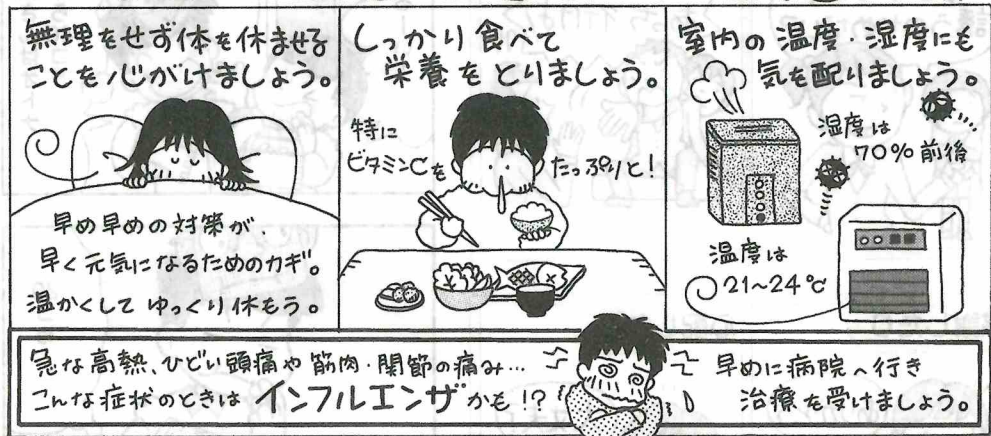 無理をせず体を休ませる
ことを心がけましょう。
早め早めの対策が、
早く元気になるためのカギ。
温かくしてゆっくり休もう。
しっかり食べて
栄養をとりましょう。
特に
ビタミンCを
たっぷりと!
室内の温度・湿度にも
気を配りましょう。
湿度は
70%前後
温度は
21~24℃
急な高熱、ひどい頭痛や筋肉・関節の痛み…
こんな症状のときはインフルエンザかも!?
早めに病院へ行き
治療を受けましょう。